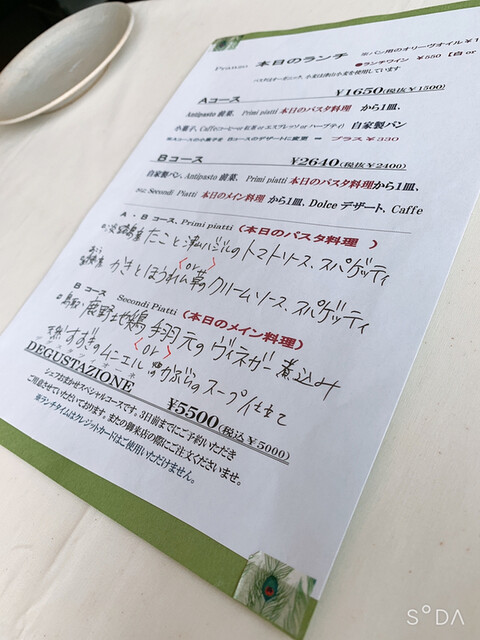 Pranzo 本日のランチ ※パン用のオリーヴオイル¥1
●ランチワイン ¥550 【白 or
Aコース ¥1650(税抜¥1500)
Antipasto 前菜、 Primi piatti 本日のパスタ料理 から1皿、
小菓子、Caffe(コーヒー or 紅茶 or エスプレッソ or ハーブティ) 自家製パン
※Aコースの小菓子を Bコースのデザートに変更 ⇒ プラス¥330
Bコース ¥2640(税抜¥2400)
自家製パン、Antipasto 前菜、 Primi piatti 本日のパスタ料理から1皿、
Secondi Piatti 本日のメイン料理 から1皿、Dolce デザート、Caffe
A・Bコース、Primi piatti (本日のパスタ料理 )
たこと バジルのトマトソース、スパゲッティ
(or)
かきとほうれん草のクリームソース、スパゲッティ
Bコース Secondi Piatti (本日のメイン料理)
鹿野地鶏 手羽元の ヴィネガー煮込み
(or)
すずきのムニエル かぶらのスープ仕立て
DEGUSTAZIONE
¥5500(税込¥5000)
シェフおまかせスペシャルコースです。3日前までにご予約いただき
ご用意させていただいております。またの御来店の際にご注文くださいませ。
※ランチタイムはクレジットカードはご使用いただけません。
SODA